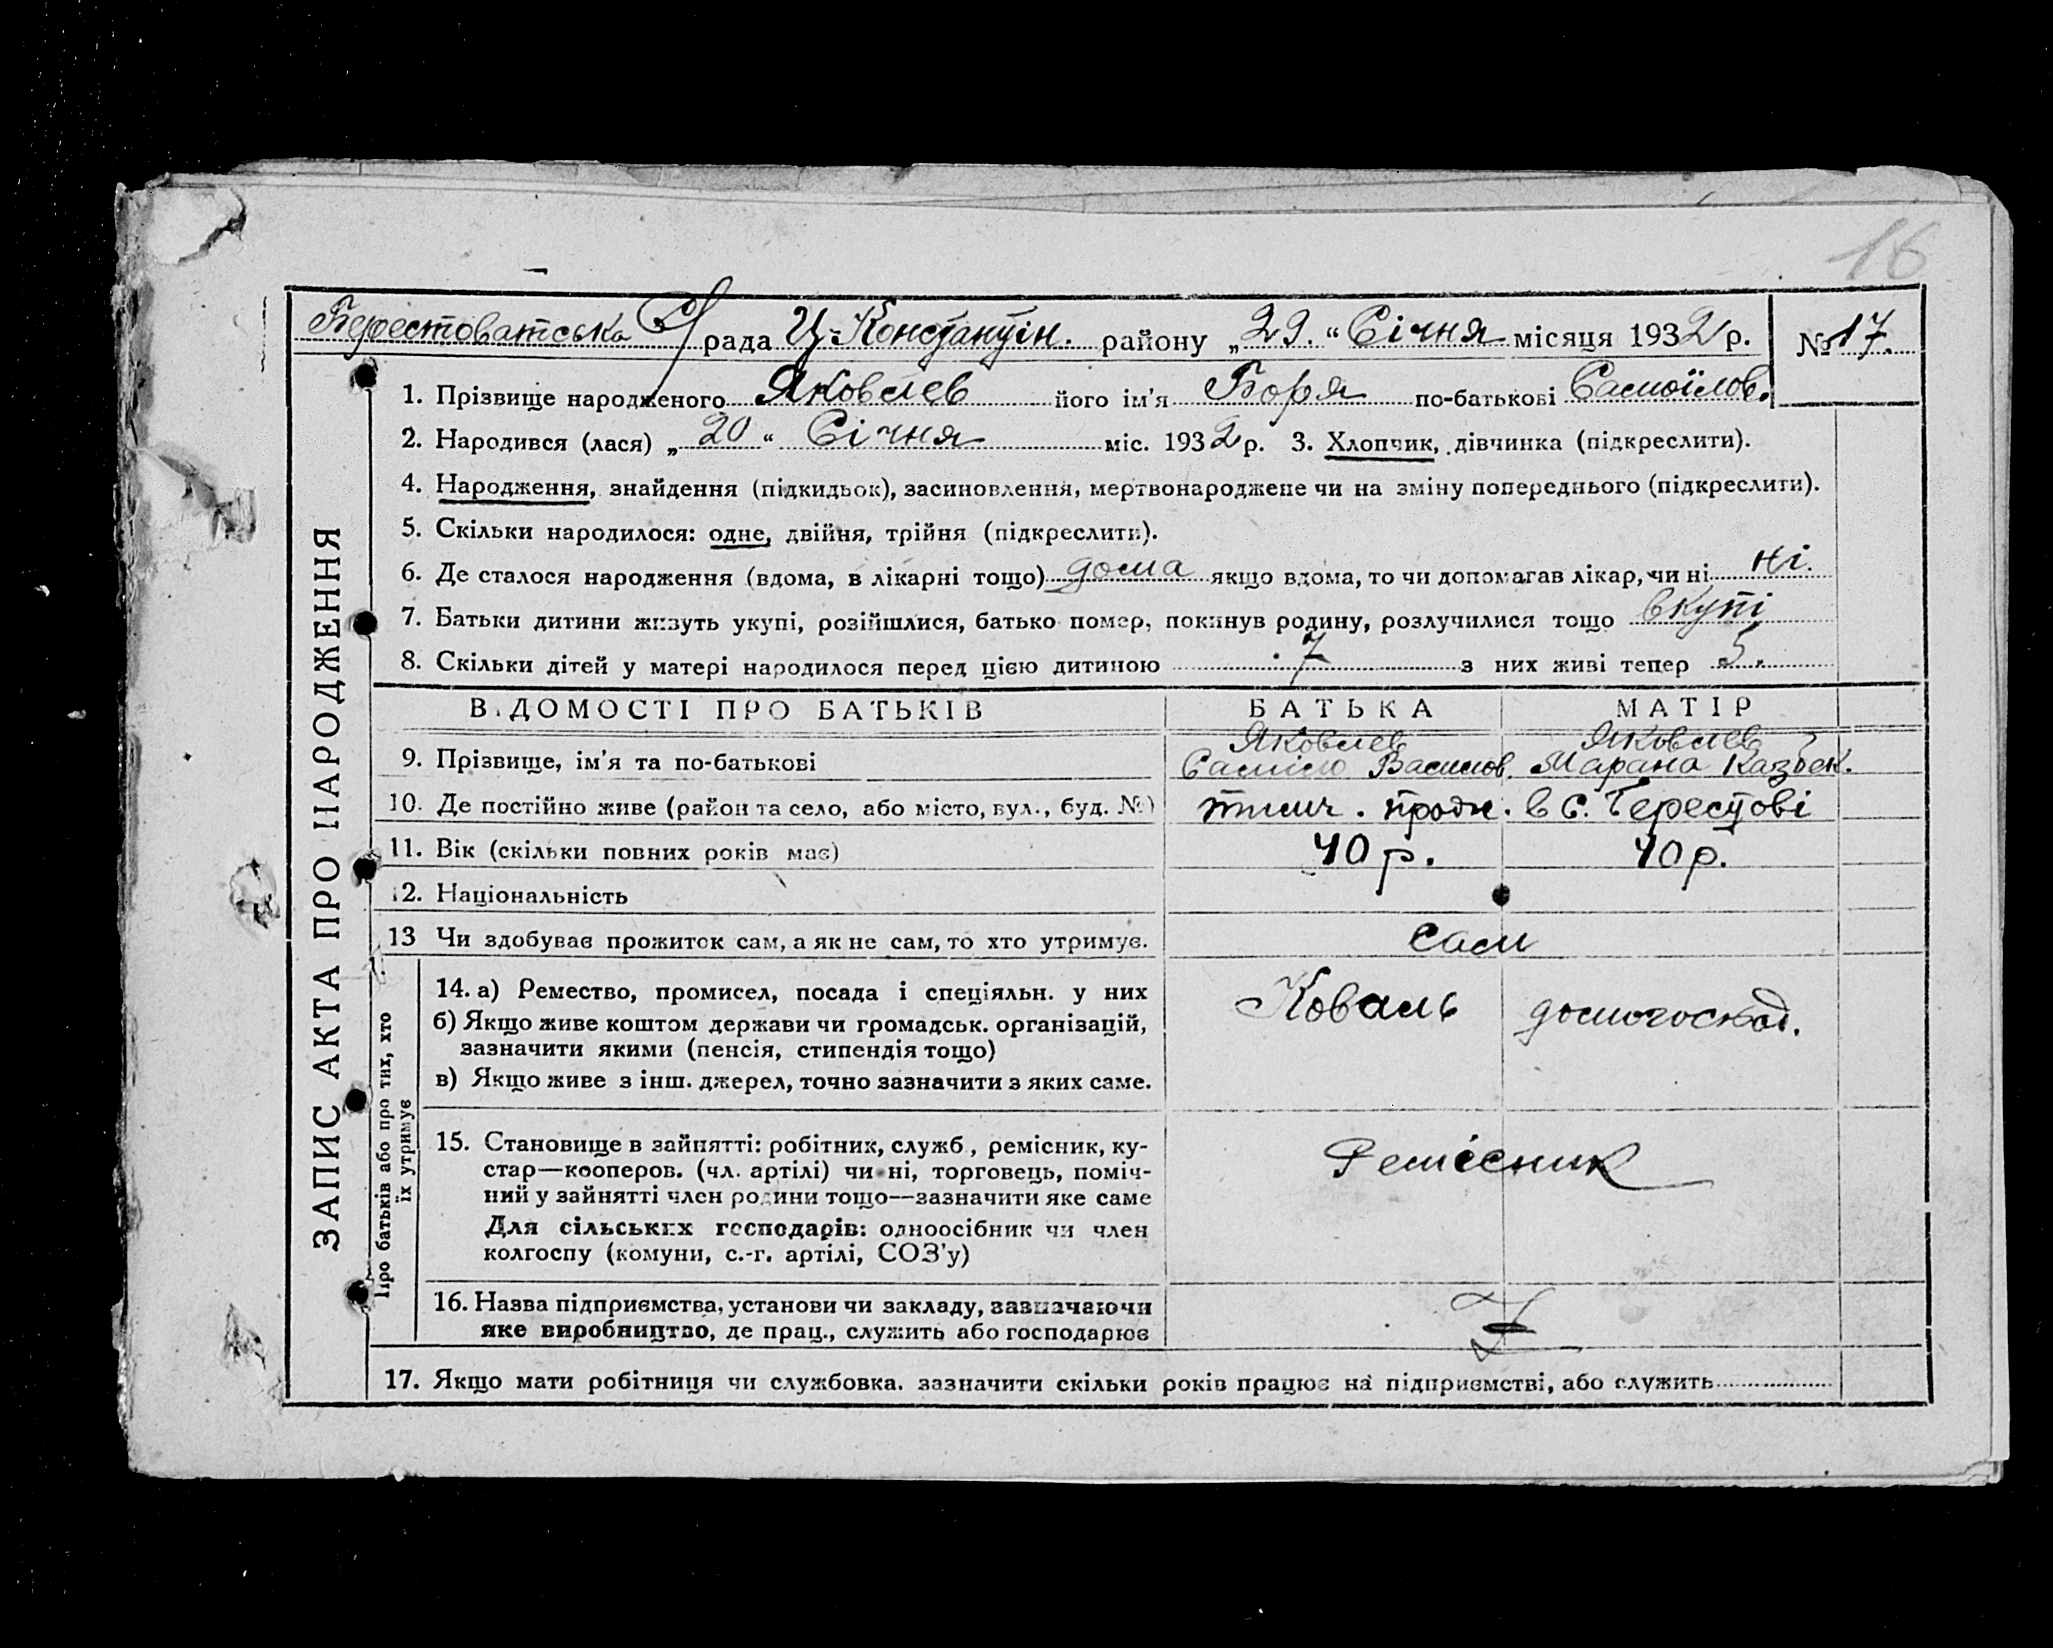 16
Берестоватська С/рада Ц-Константін. району „29.“ Січня місяця 1932 р. № 17.
ЗАПИС АКТА ПРО НАРОДЖЕННЯ
1. Прізвище народженого Яковлев його ім'я Боря по-батькові Самоїлов.
2. Народився (лася) „20“ Січня міс. 1932 р. 3. Хлопчик, дівчинка (підкреслити).
4. Народження, знайдення (підкидьок), засиновлення, мертвонароджене чи на зміну попереднього (підкреслити).
5. Скільки народилося: одне, двійня, трійня (підкреслити).
6. Де сталося народження (вдома, в лікарні тощо) дома якщо вдома, то чи допомагав лікар, чи ні ні.
7. Батьки дитини живуть укупі, розійшлися, батько помер, покинув родину, розлучилися тощо вкупі
8. Скільки дітей у матері народилося перед цією дитиною 7 з них живі тепер 5.
ВІДОМОСТІ ПРО БАТЬКІВ БАТЬКА МАТІР
Яковлев Яковлев
9. Прізвище, ім'я та по-батькові Васиов. Марана Казбек.
10. Де постійно живе (район та село, або місто, вул., буд. №) тимч. прож. в с. Берестові
11. Вік (скільки повних років має) 40 р. 40 р.
12. Національність
13 Чи здобуває прожиток сам, а як не сам, то хто утримує. сам
Про батьків або про тих, хто
їх утримує
14. а) Ремество, промисел, посада і спеціяльн. у них Коваль домогоспод.
б) Якщо живе коштом держави чи громадськ. організацій,
зазначити якими (пенсія, стипендія тощо)
в) Якщо живе з інш. джерел, точно зазначити з яких саме.
15. Становище в зайнятті: робітник, служб., ремісник, ку- Ремісник
стар—кооперов. (чл. артілі) чи ні, торговець, поміч-
ний у зайнятті член родини тощо—зазначити яке саме
Для сільських господарів: одноосібник чи член
колгоспу (комуни, с.-г. артілі, СОЗ'у)
16. Назва підприємства, установи чи закладу, зазначаючи
яке виробництво, де прац., служить або господарює
17. Якщо мати робітниця чи службовка, зазначити скільки років працює на підприємстві, або служить